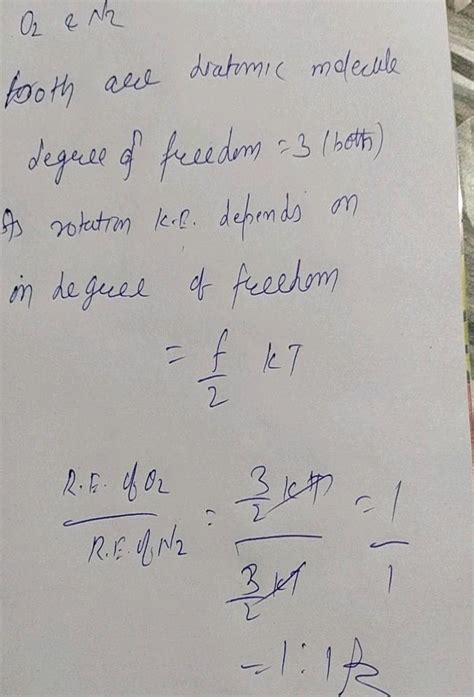 O2 & N2
both are diatomic molecule
degree of freedom = 3 (both)
As rotation K.E. depends on
in degree of freedom
= f/2 KT
R.E. of O2 / R.E. of N2 = 3/2 KT / 3/2 KT = 1/1
= 1:1